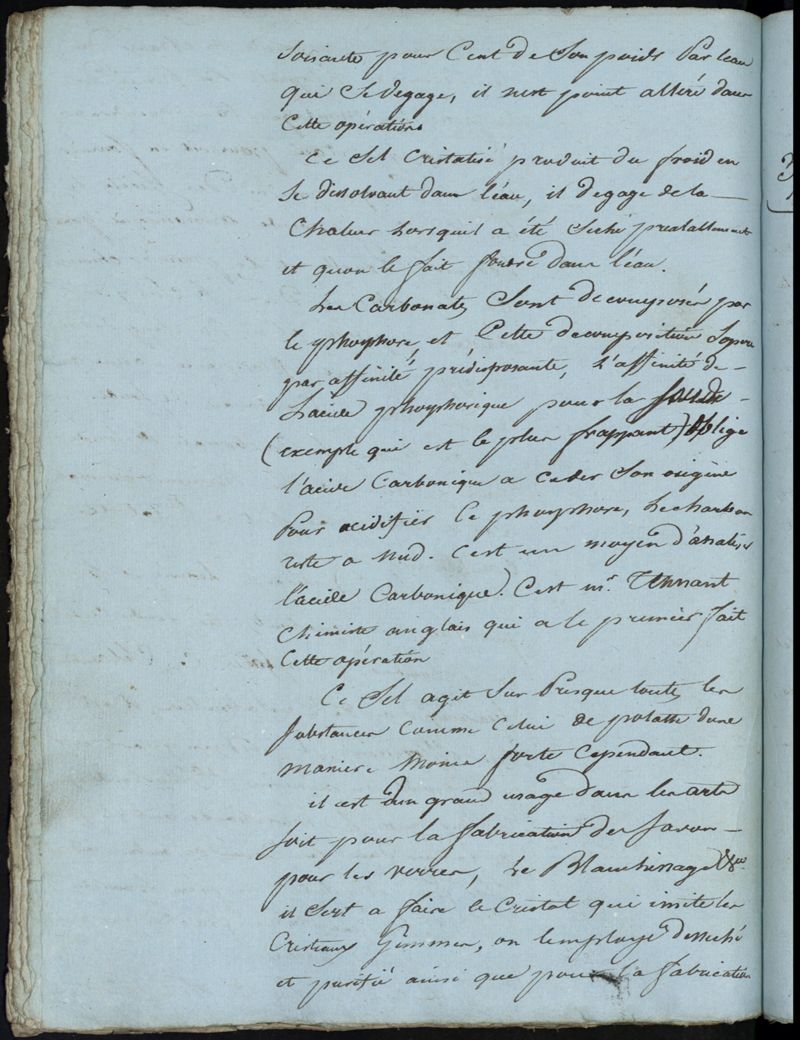 soixante pour Cent de Son poids Par leau
qui Se degage, il nest point alteré dans
Cette opération
Ce Sel Cristalisé produit du froid en
Se dissolvant dans l'éau, il degage de la
Chaleur Lorsquil a été Seché prealablement
et quon le fait foudre dans l'éau.
Les Carbonates Sont decomposés par
le phosphore, et Cette decomposition Sopere
par affinité prédisposante, L'affinité de
Lacide phosphorique pour la soude
(exemple qui est le plus frappant) oblige
l'acide Carbonique a Ceder Son oxigene
Pour acidifier Le phosphore, Le charbon
reste a Nud. C'est un moyen d'analiser
l'acide Carbonique. C'est mr. Tennant
Chimiste anglais qui a le premier fait
Cette opération
Ce Sel agit Sur Presque toutes les
Substances Comme Celui de potasse dune
maniere Moins forte Cependant.
il est d'un grand usage dans les arts
soit pour la fabrication du Savon
pour les verres, Le Blanchissage &c.
il Sert a faire le Cristal qui imite les
Cristaux Gemmes, on lemploye desseché
et purifié ainsi que pour la fabrication